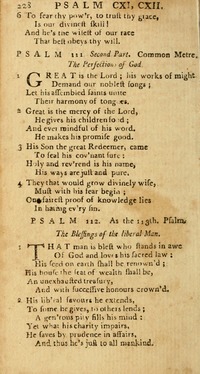 228 PSALM CXI, CXII.
6 To fear thy pow'r, to trust thy grace,
Is our divinest skill!
And he's the wisest of our race
That best obeys thy will.
PSALM 111. Second Part. Common Metre.
The Perfections of God.
1 GREAT is the Lord; his works of might
Demand our noblest songs;
Let his assembled saints unite
Their harmony of tongues.
2 Great is the mercy of the Lord,
He gives his children food;
And ever mindful of his word,
He makes his promise good.
3 His Son the great Redeemer, came
To seal his cov'nant sure:
Holy and rev'rend is his name,
His ways are just and pure.
4 They that would grow divinely wise,
Must with his fear begin;
Our fairest proof of knowledge lies
In hating ev'ry sin.
PSALM 112. As the 113th Psalm.
The Blessings of the liberal Man.
1 THAT man is blest who stands in awe
Of God and loves his sacred law:
His seed on earth shall be renown'd;
His house the seat of wealth shall be,
An unexhausted treasury,
And with successive honours crown'd.
2 His lib'ral favours he extends,
To some he gives, to others lends;
A gen'rous pity fills his mind:
Yet what his charity impairs,
He saves by prudence in affairs,
And thus he's just to all mankind.